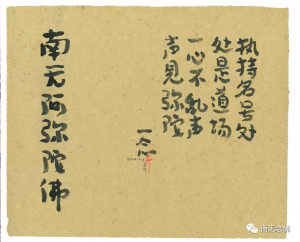 执持名号处
处是道场
一心不乱声
声见弥陀
南无阿弥陀佛
南无念佛